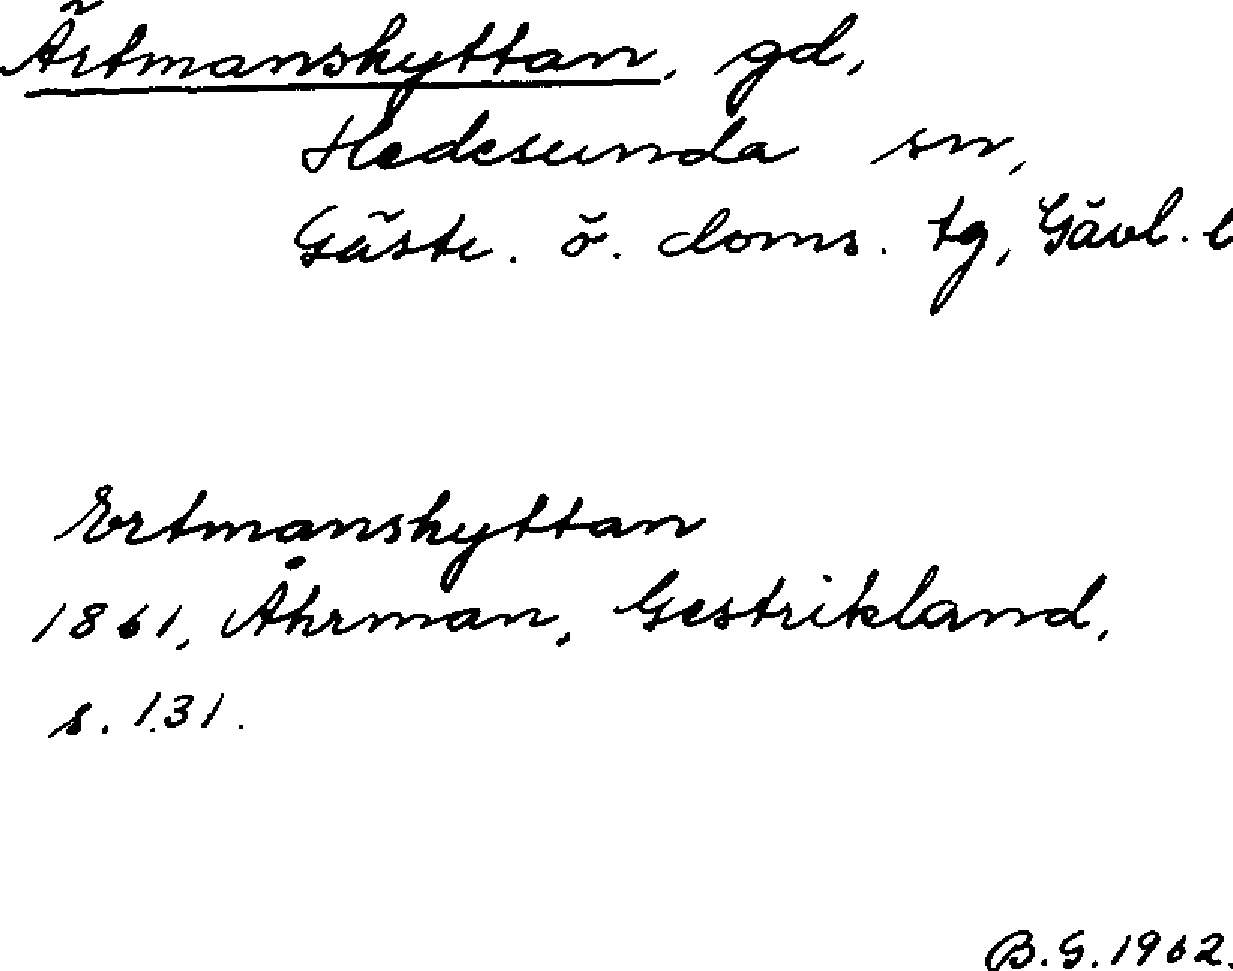 Ärtmanshyttan, gd,
Hedesunda sn,
Gästr. ö. doms. tg, Gävl. l
Ertmanshyttan
1861, Åhrman, Gestrikland,
s. 131.
B.G. 1962.